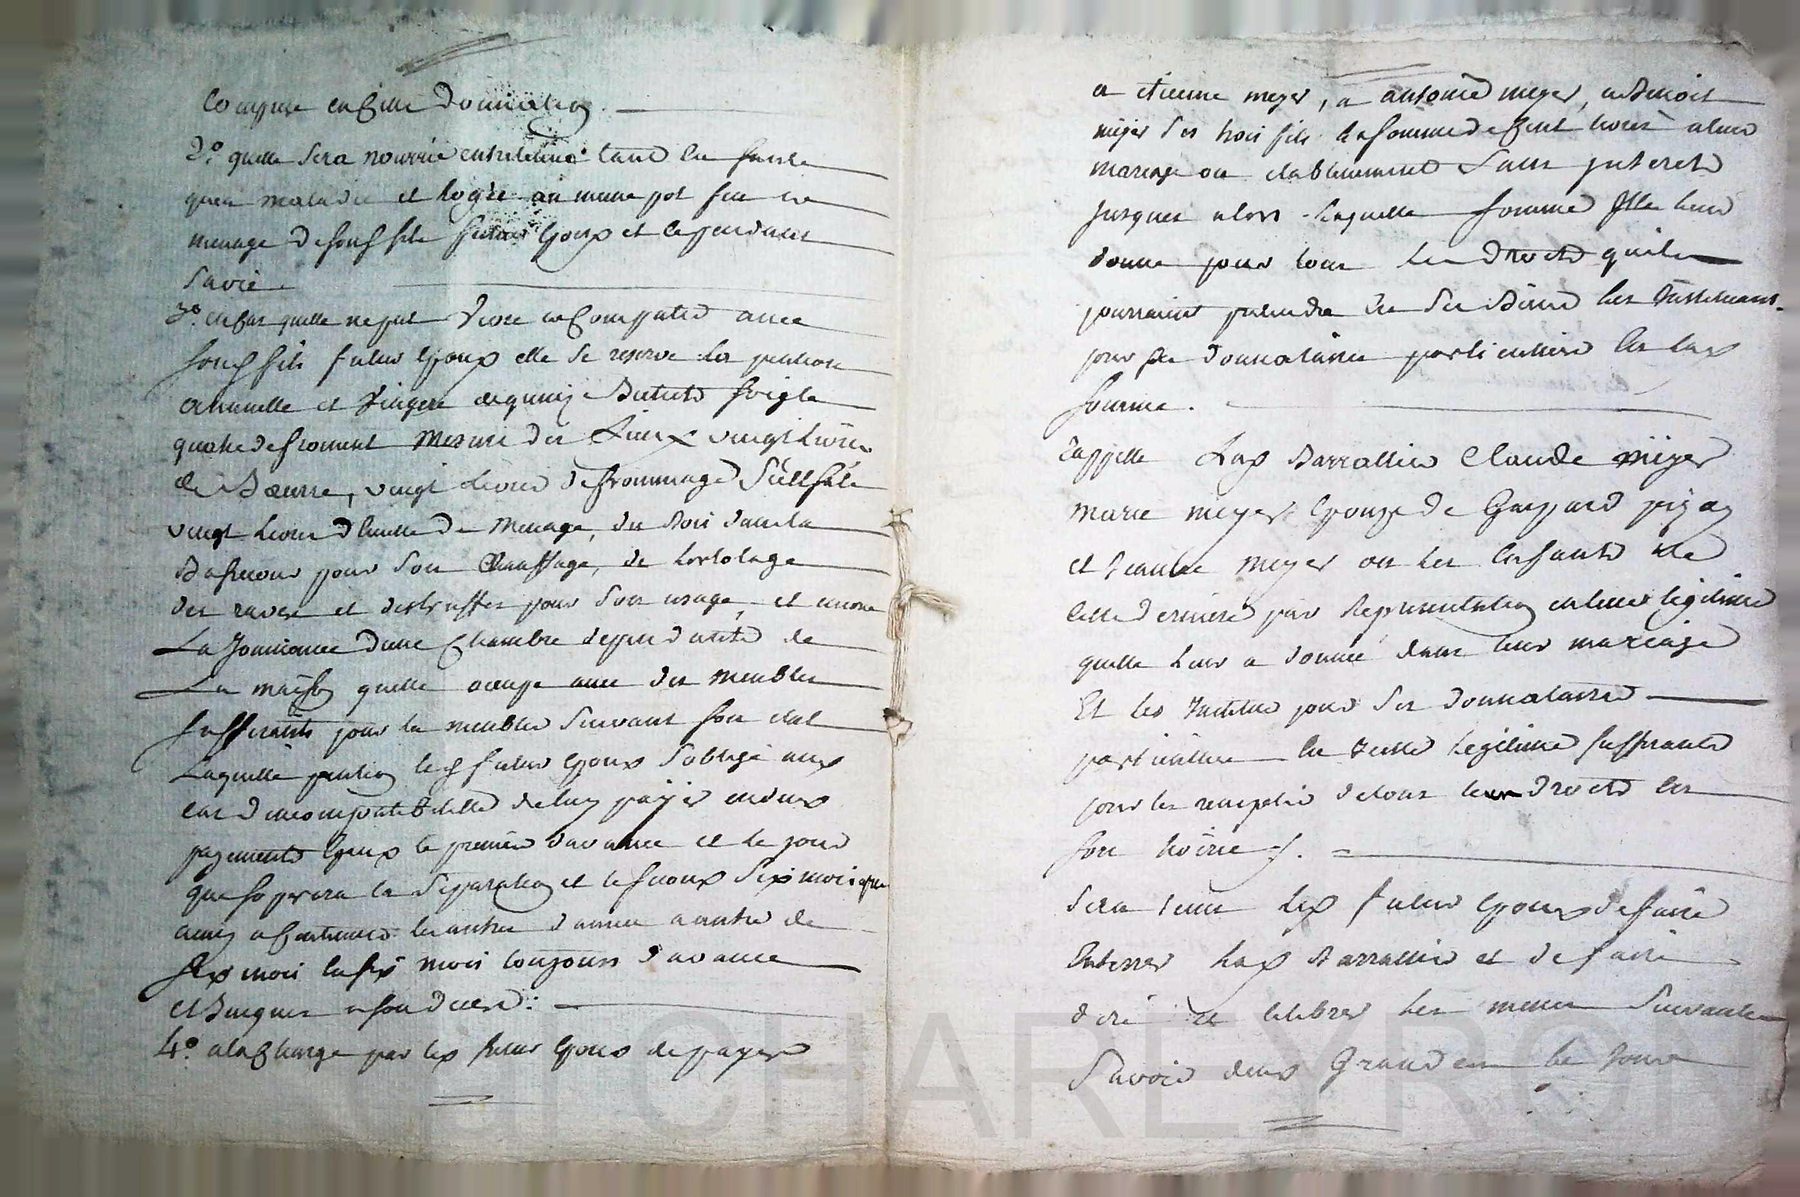 comprise en cette donnation
2° quelle sera nourrie entretenue tant en santé
quen maladie et logée au meme pot feu et
menage de son fils futur epoux et ce pendant
sa vie
3° en cas quelle ne put vivre et compatir avec
son fils futur epoux elle se reserve la pention
annuelle et viagere de quinze Bichets soigle
quatre de froment mesure des lieux vingt livres
de Beurre, vingt livres de frommage
vingt livres dhuille de menage, du Bois dans la
pour son chauffage, de hortolage
des raves et des truffes pour son usage, et encore
La Jouissance dune chambre dependante de
La maison quelle occupe avec des meubles
suffisants pour la meubler suivant son etat
Laquelle pention le futur epoux soblige aux
cas dincompatibilité de luy payer en deux
payements egaux le premier davance et le jour
que soperera la separation et le second six mois apres
ainsi a continuer les autres dannee a autre de
six mois en six mois toujours davance
et Jusques a son deces :
4° a la charge par les futur epoux de payer
a etienne meyer, a antoine meyer, a Benoit
meyer ses trois fils la somme de cent livres a leur
mariage ou etablissement sans interets
jusques alors laquelle somme elle leur
donne pour tous les droits quils
pourraient pretendre sur ses Biens les instituant
pour ses donnataires particuliers en la
somme.
rappelle Barrallier Claude meyer
marie meyer epouze de Gaspard
et meyer ou les enfants de
cette derniere par representation en leur legitime
quelle leur a donné dans leur mariage
Et les institue pour ses donnataires
particuliers en telle legitime suffisante
pour les remplir de tous leur droits en
son hoirie.
sera tenu le futur epoux de faire
enterrer Barrallier et de faire
dire et celebrer les messes suivantes
savoir deux Grandes le jour
CHARLEYRON